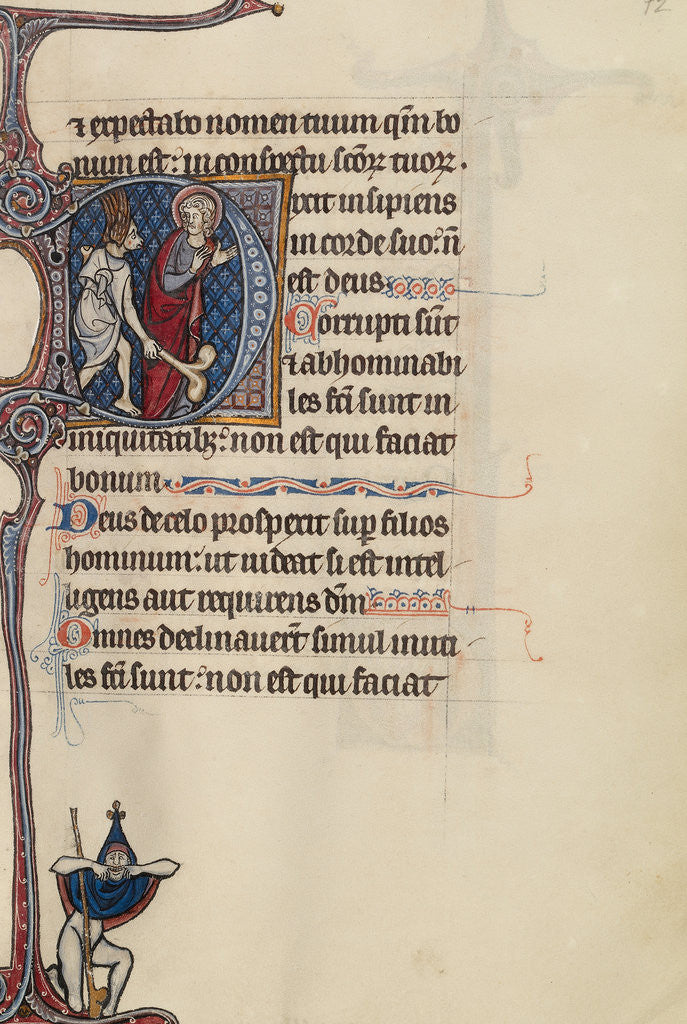 92
⁊ expectabo nomen tuum qm̄ bo
num est: in conspectu sc̄oꝝ tuoꝝ.
Dixit insipiens
in corde suo: n̄
est deus
Corrupti sūt
⁊ abhominabi
les fc̄i sunt in
iniquitatibꝫ: non est qui faciat
bonum
Deus de celo prosperit suꝑ filios
hominum: ut uideat si est intel
ligens aut requirens dm̄
Omnes declinauer̄t simul inuti
les fc̄i sunt: non est qui faciat